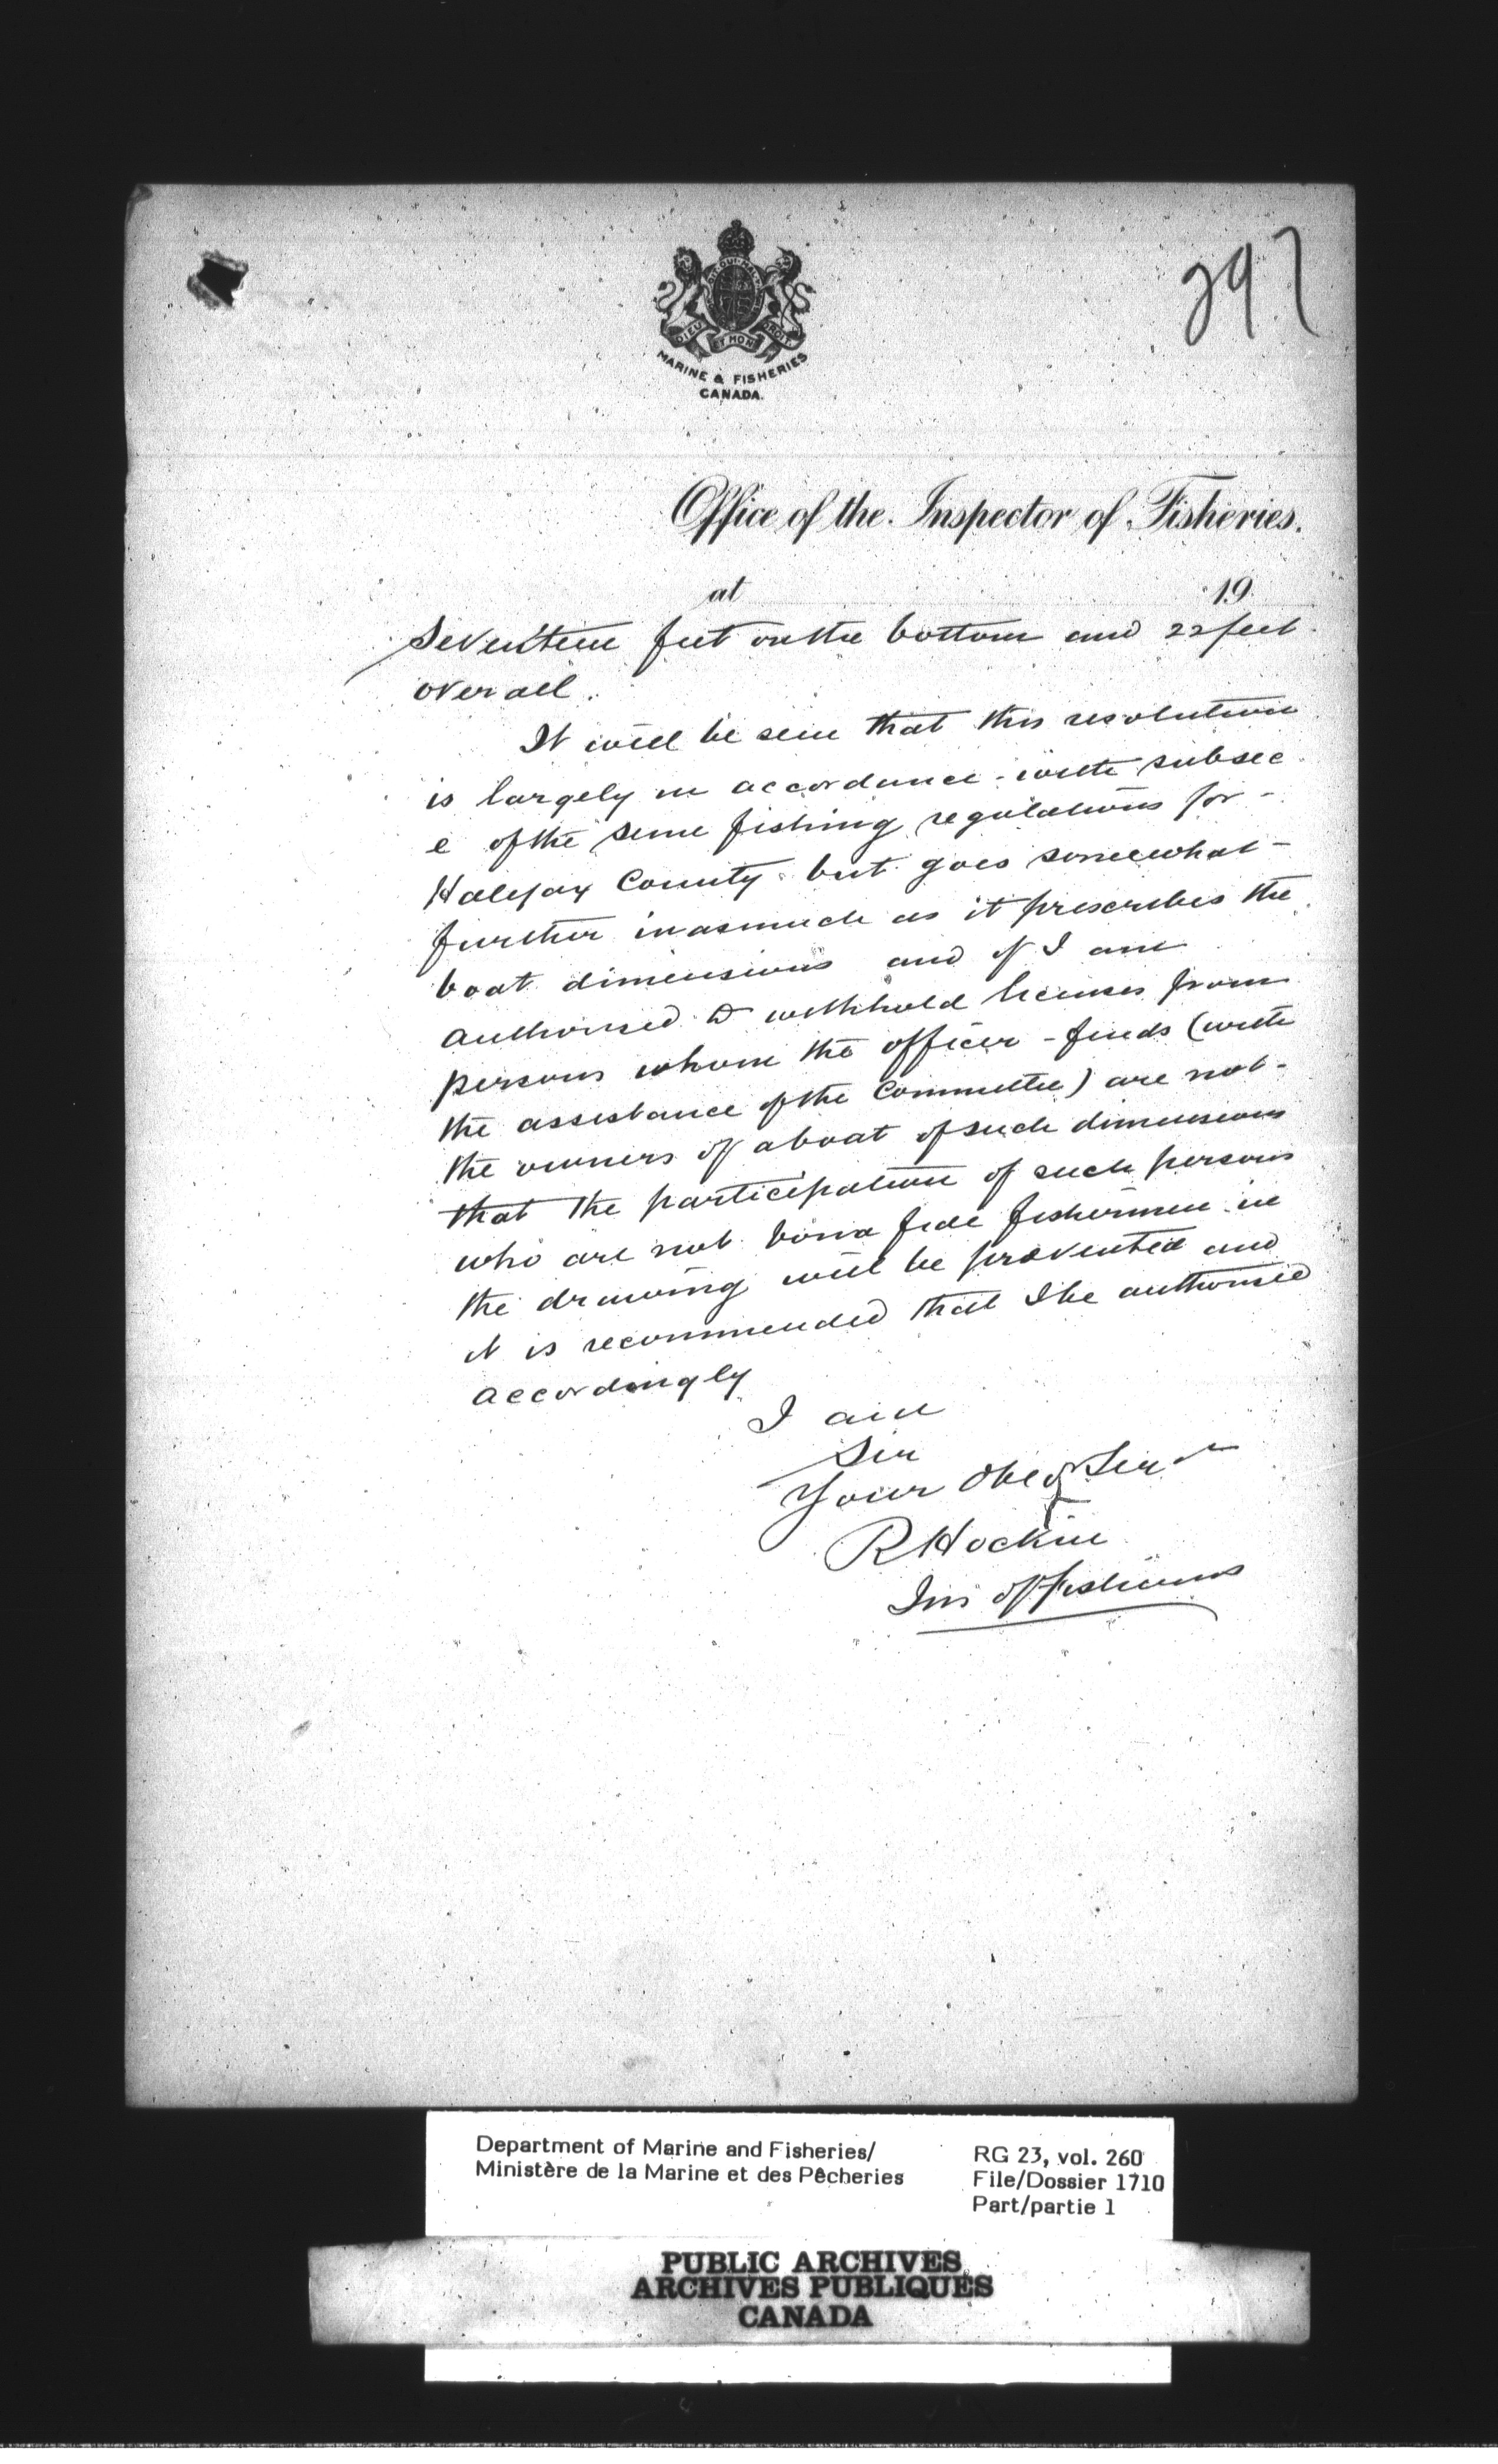 297
HONI SOIT QUI MAL Y PENSE
DIEU ET MON DROIT
MARINE & FISHERIES
CANADA.
Office of the Inspector of Fisheries.
at 19
Seventeen feet on the bottom and 22 feet
over all.
It will be seen that this resolution
is largely in accordance with subsec
e of the seine fishing regulations for
Halifax County but goes somewhat
further inasmuch as it prescribes the
boat dimensions and if I am
authorised to withhold licenses from
persons whom the officer finds (with
the assistance of the Committee) are not
the owners of a boat of such dimensions
that the participation of such persons
who are not bona fide fishermen in
the drawing will be prevented and
it is recommended that I be authorised
accordingly
I am
Sir
Your Obed Servt
R Hockin
Ins of Fisheries
Department of Marine and Fisheries/
Ministère de la Marine et des Pêcheries
RG 23, vol. 260
File/Dossier 1710
Part/partie 1
PUBLIC ARCHIVES
ARCHIVES PUBLIQUES
CANADA